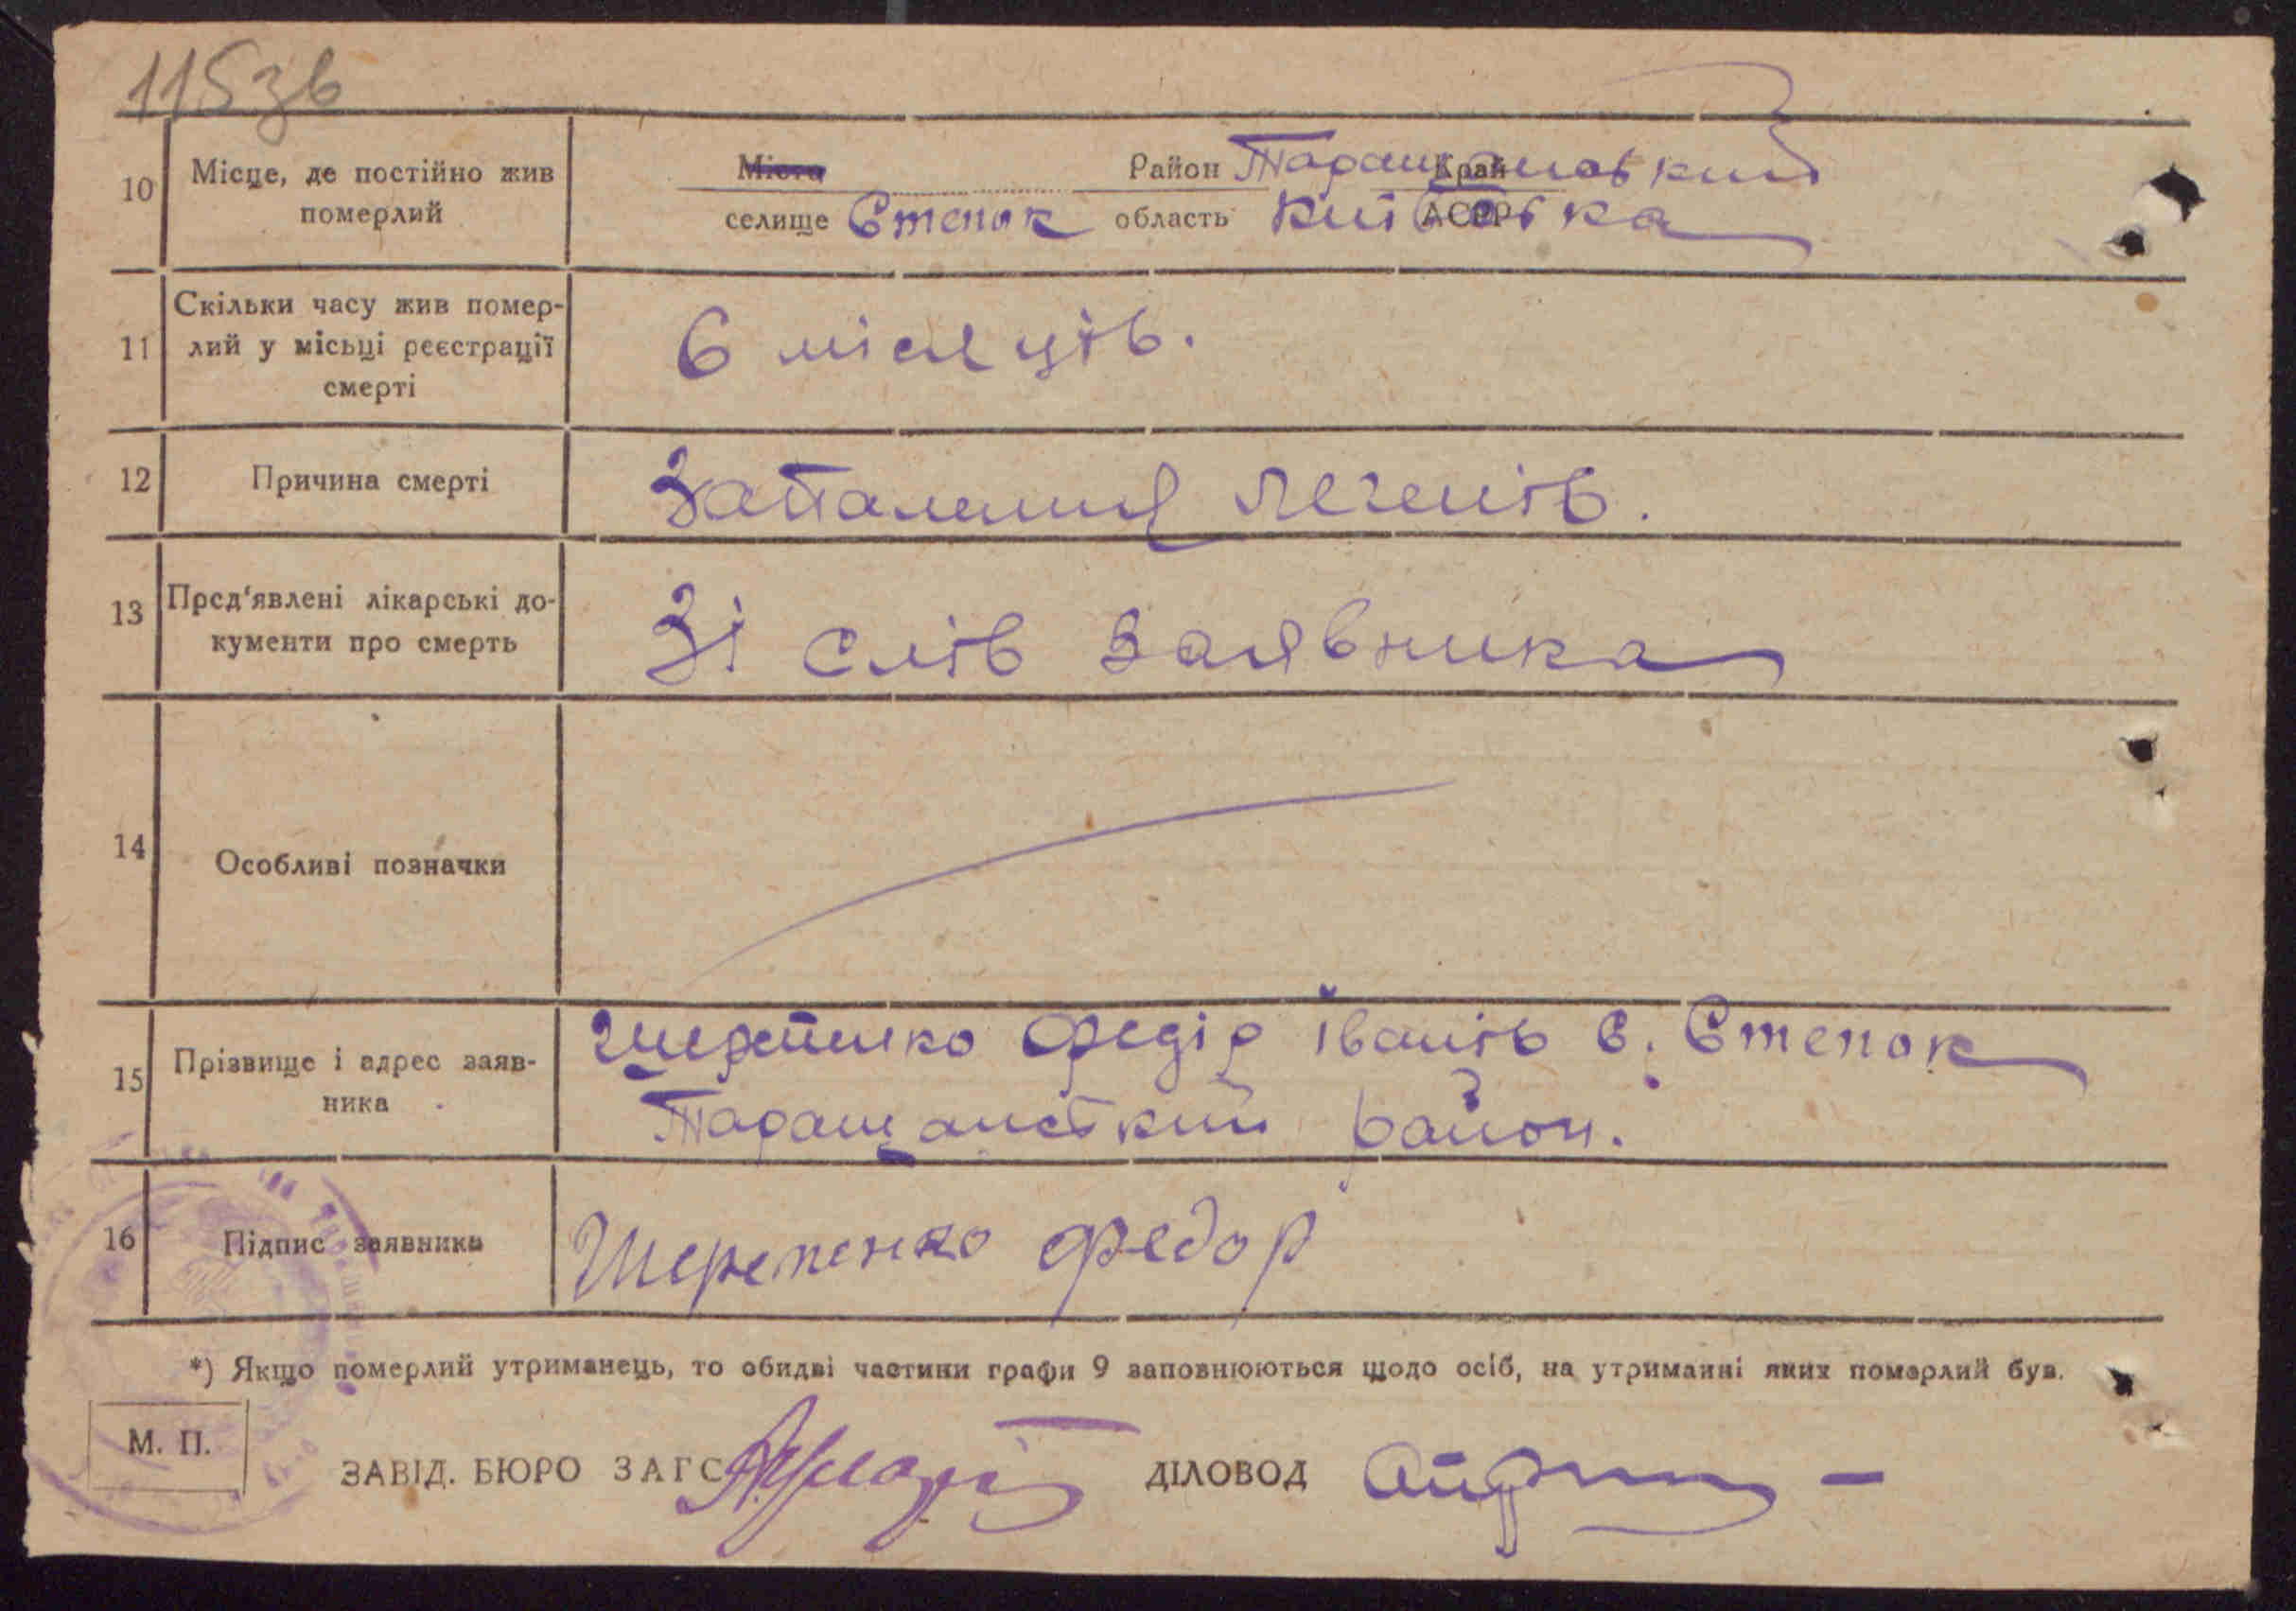 115 зв
10 Місце, де постійно жив померлий
Міста Район Таращанський Край
селище Степок область Київська АСРР
11 Скільки часу жив помер-
лий у місьці реєстрації
смерті
6 місяців.
12 Причина смерті Запалення легенів.
13 Пред'явлені лікарські до-
кументи про смерть
Зі слів заявника
14 Особливі позначки
15 Прізвище і адрес заяв-
ника
Шерепенко Федір Іванів с. Степок
Таращанський район.
16 Підпис заявника Шерепенко Федор
*) Якщо померлий утриманець, то обидві частини графи 9 заповнюються щодо осіб, на утриманні яких померлий був.
М. П.
ЗАВІД. БЮРО ЗАГС ДІЛОВОД